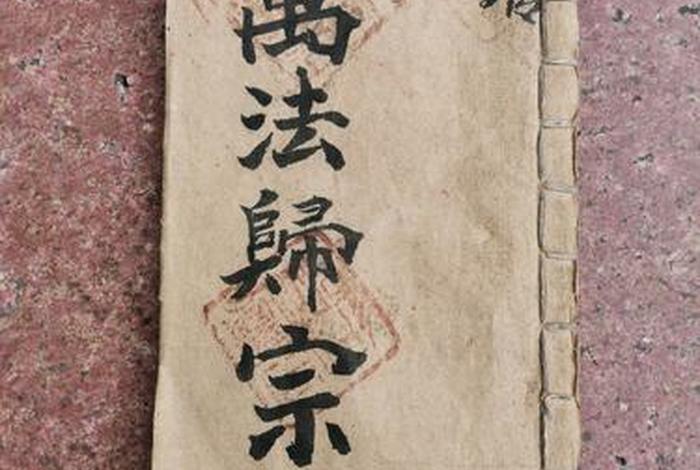 萬法歸宗